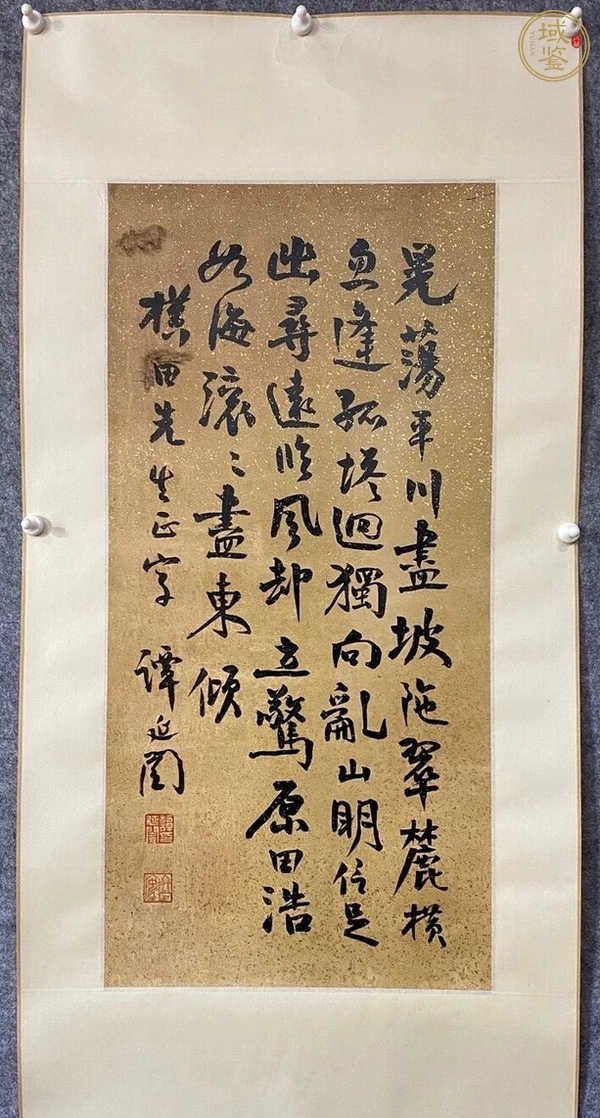 晃蕩平川盡坡陁翠麓橫
忽逢孤塔迥獨向亂山明信足
幽尋遠臨風却立驚原田浩
如海滾々盡東傾
樸田先生正字 譚延闓
域鉴
YUJIAN